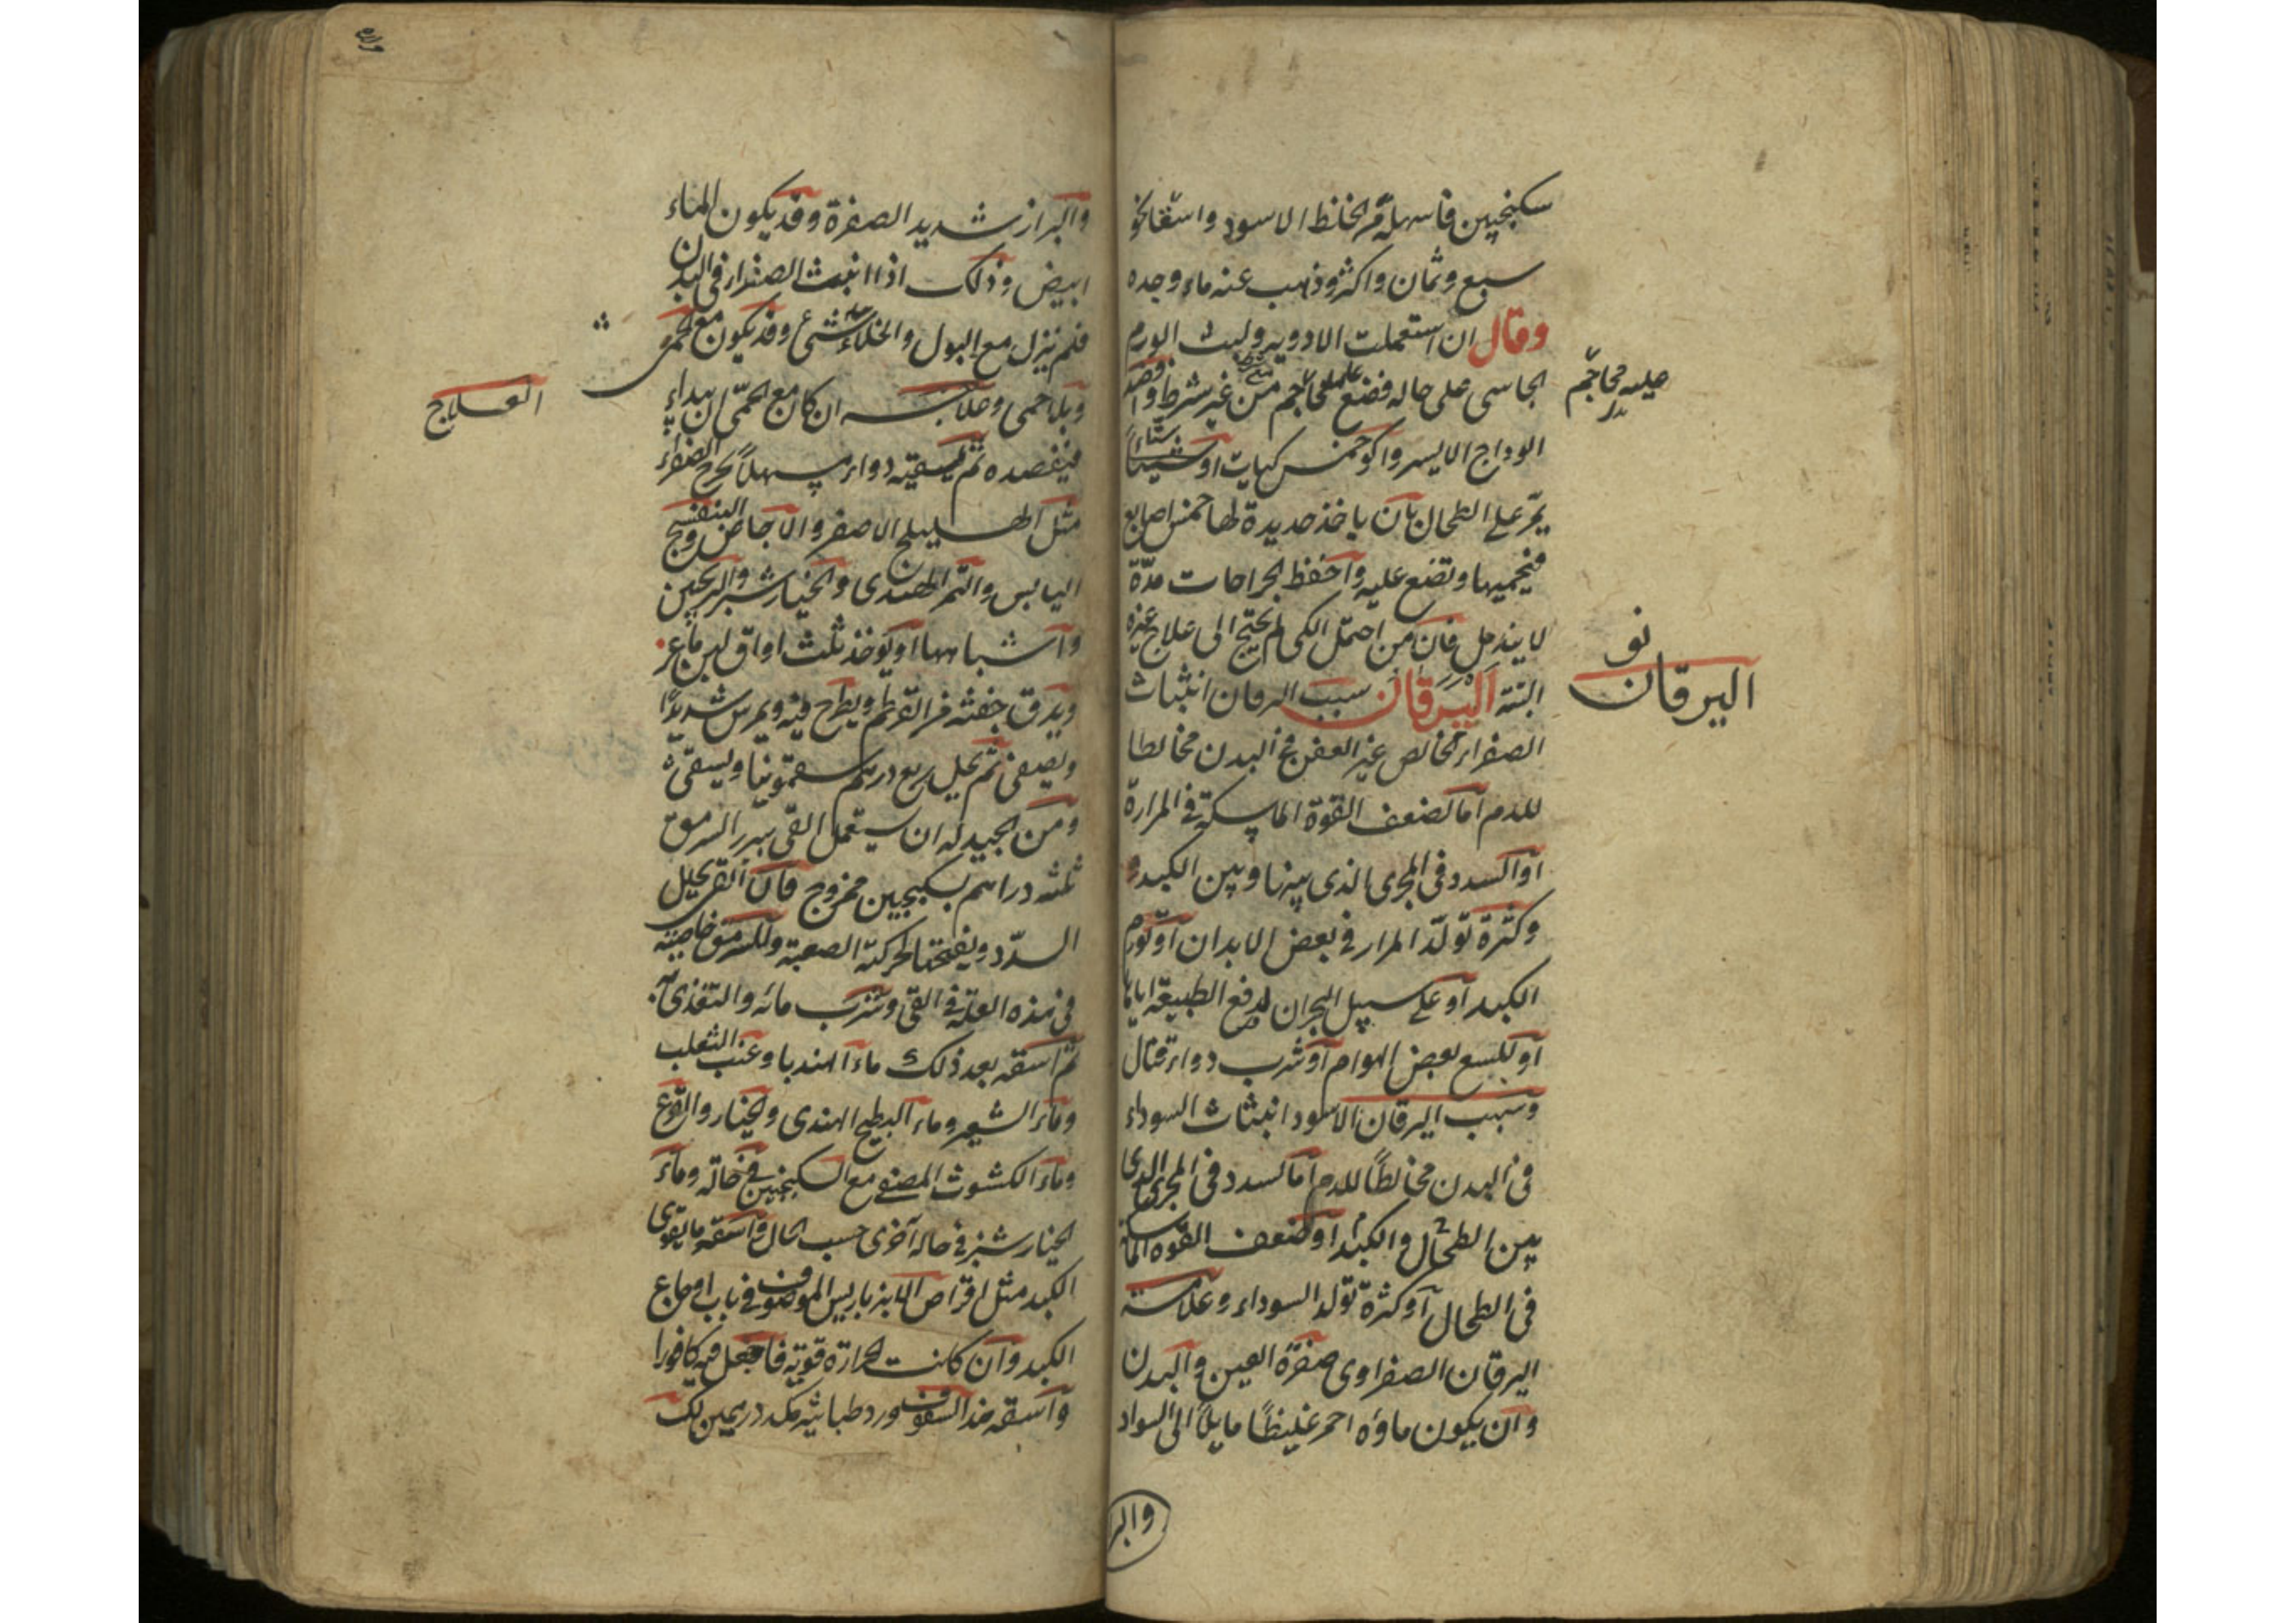 سكنجبين فاسهله مر الخلط الاسود واستفا نحو
سبع وثمان واكثر وذهب عنه ماء وجده
وقال ان استعملت الادوية ولبث الورم
الجاسى على حاله فضع عليه محاجم من غير شرط وافصد
عليه محاجم
الوداج الايسر واكو خمس كيات او ستا
يمر على الطحال بان ياخذ حديدة لها خمس اصابع
فيحميها وتضع عليه واحفظ الجراحات مدة
لا يندمل فان من احتمل الكى لم يحتج الى علاج غيره
البتة اليرقان سبب اليرقان انبثاث
اليرقان
الصفراء الخالص غير العفن فى البدن مخالطا
للدم اما لضعف القوة الماسكة فى المرارة
او السدد فى المجرى الذى بينها وبين الكبد
وكثرة تولد المرار فى بعض الابدان او تورم
الكبد او على سبيل البحران لدفع الطبيعة اياها
او للسع بعض الهوام او شرب دواء قتال
وسبب اليرقان الاسود انبثاث السوداء
فى البدن مخالطا للدم اما لسدد فى المجرى الذى
بين الطحال والكبد او لضعف القوة الماسكة
فى الطحال او كثرة تولد السوداء وعلامته
اليرقان الصفراوى صفرة العين والبدن
وان يكون ماؤه احمر غليظا مايلا الى السواد
والبر
والبراز شديد الصفرة وقد يكون الماء
ابيض وذلك اذا انبث الصفراء فى البدن
فلم ينزل مع البول والخلاء شئ وقد يكون مع حمى
وبلا حمى وعلاجه ان كان مع الحمى ان يبداء
العلاج
فيفصده ثم يسقيه دواء مسهلا يخرج الصفراء
مثل الهليلج الاصفر والاجاص والبنفسج
اليابس والتمر الهندى والخيارشنبر والترنجبين
واشباهها او يؤخذ ثلث اواق لبن ماعز
ويدق حفنة من القرطم ويطرح فيه ويمرس شديدا
ويصفى ثم يحل ربع درهم سقمونيا ويسقى
ومن الجيد له ان يستعمل القى ببزر السرمق
ثلثه دراهم بسكنجبين ممزوج فان القى يحلل
السدد ويفتحها لحركته الصعبة وللسرمق خاصية
فى هذه العلة فى القى وشرب مائه والتغذى به
ثم اسقه بعد ذلك ماء الهندبا وعنب الثعلب
وماء الشعير وماء البطيخ الهندى والخيار والقرع
وماء الكشوث المصفى مع السكنجبين فى حالة وماء
الخيارشنبر فى حالة اخرى حسب الحال واسقه ما يقوى
الكبد مثل اقراص الانبرباريس الموصوف فى باب اوجاع
الكبد وان كانت الحرارة قوية فاجعل فيه كافورا
واسقه هذا السفوف ورد طباشير مكد درهمين لك